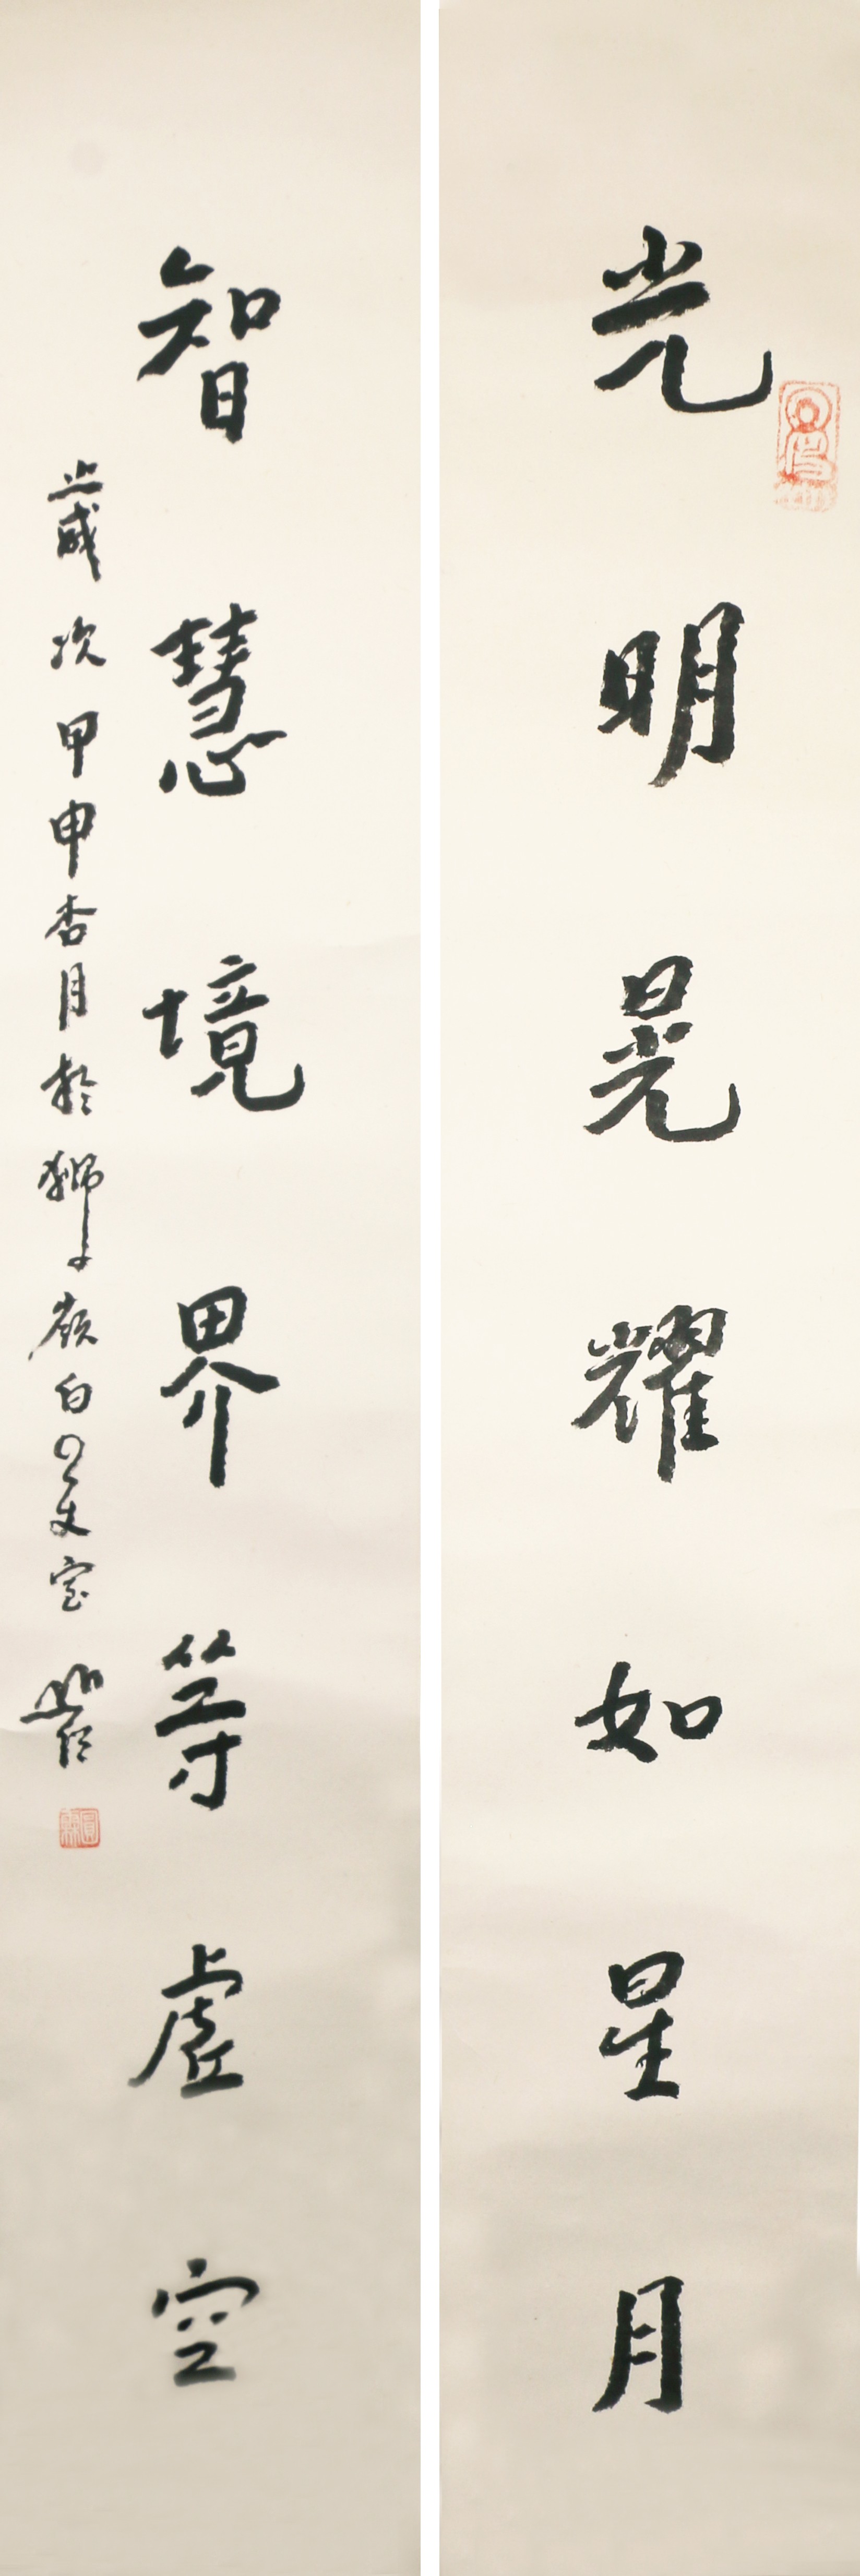 光明晃耀如星月
智慧境界等虛空
歲次甲申杏月於獅子嶺白雲丈室